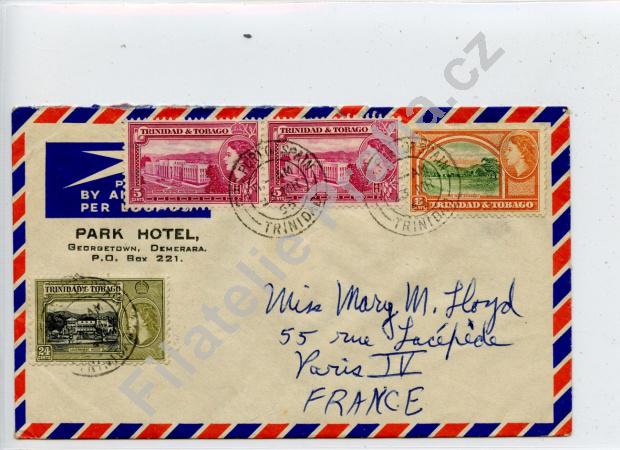 TRINIDAD & TOBAGO
5
CENTS
TRINIDAD & TOBAGO
5
CENTS
TRINIDAD & TOBAGO
CENTS
PORT OF SPAIN
TRINIDAD
TRINIDAD
BY
PER
PARK HOTEL,
GEORGETOWN, DEMERARA.
P.O. BOX 221.
TRINIDAD & TOBAGO
24
CENTS
Miss Mary M. Lloyd
55 rue Lacépède
Paris IV
FRANCE
Filatelie Praha.cz